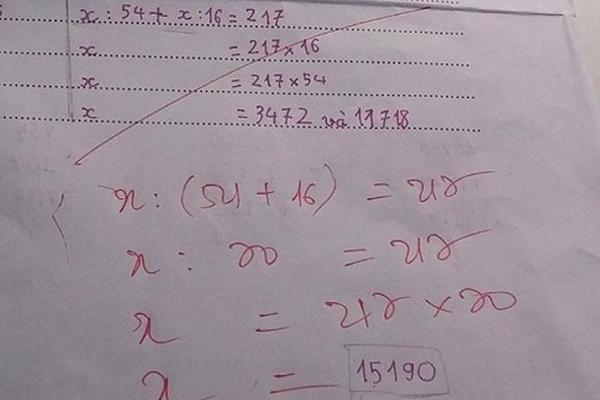 x : 54 + x : 16 = 217
x = 217 x 16
x = 217 x 54
x = 3472 và 11718
x : (54 + 16) = 217
x : 70 = 217
x = 217 x 70
x = 15190